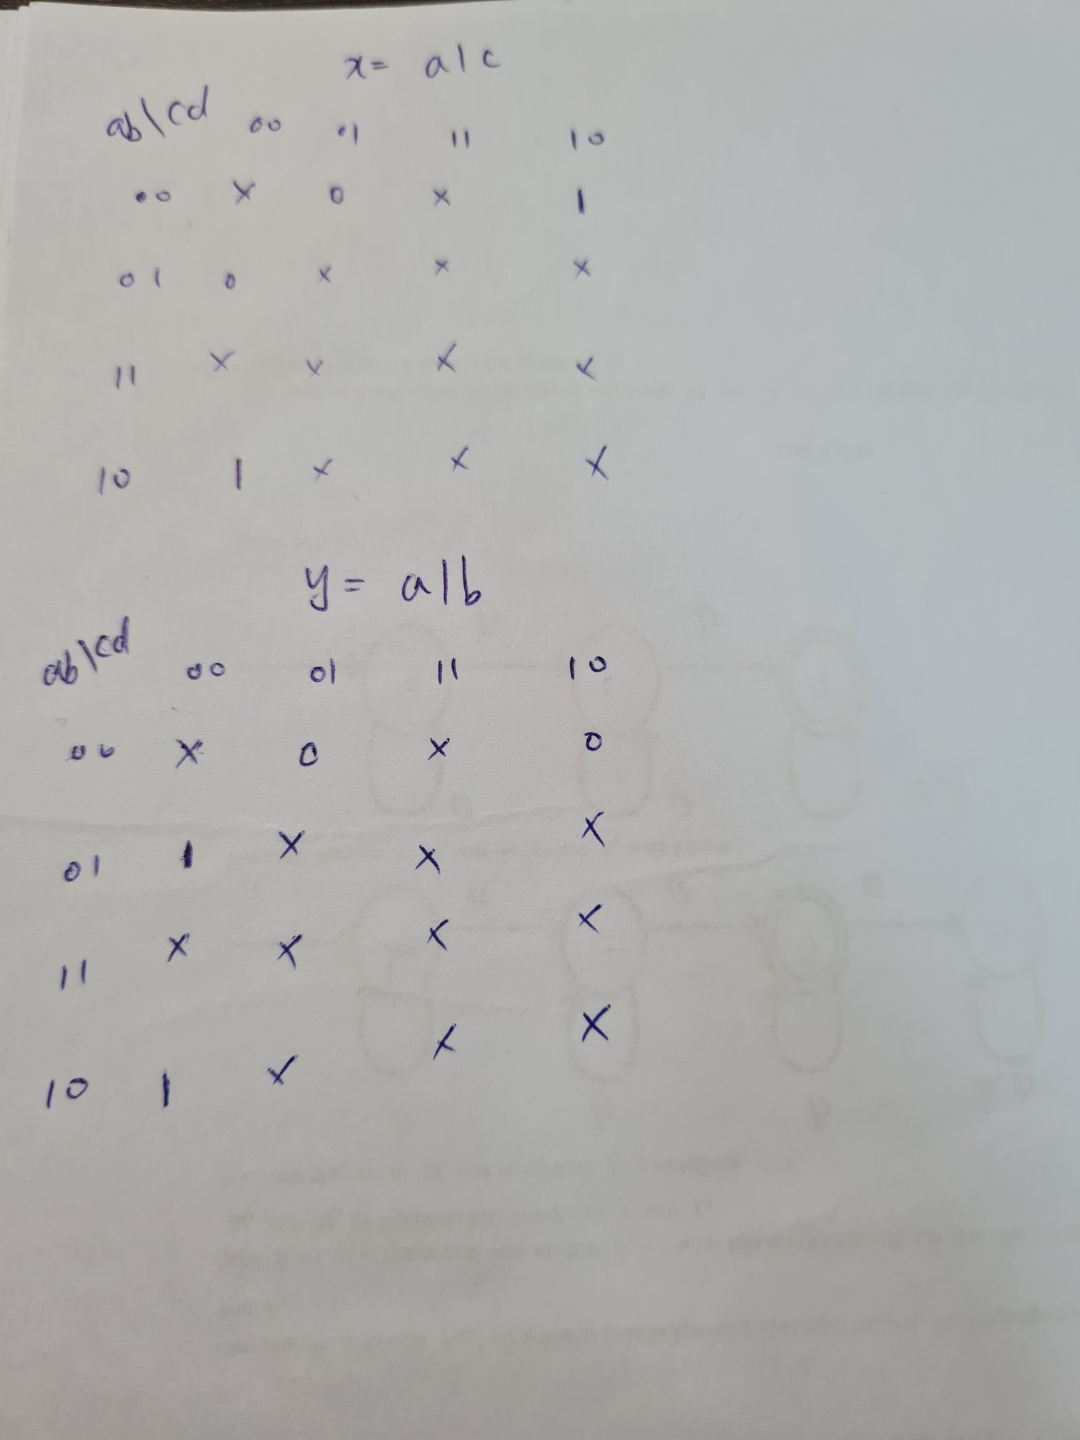 x= a|c
ab\cd 00 01 11 10
00 x 0 x 1
01 0 x x x
11 x x x x
10 1 x x x
y= a|b
ab\cd 00 01 11 10
00 x 0 x 0
01 1 x x x
11 x x x x
10 1 x x x